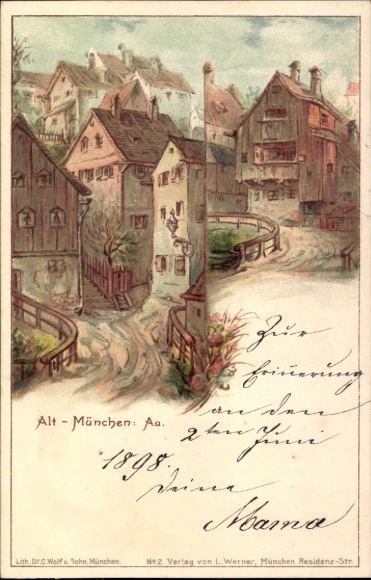 Alt - München: Au.
Zur
Erinnerung
an den
2ten Juni
1898.
Deine
Mama
Lith. Dr. C. Wolf u. Sohn, München.
No 2. Verlag von L. Werner, München Residenz-Str.